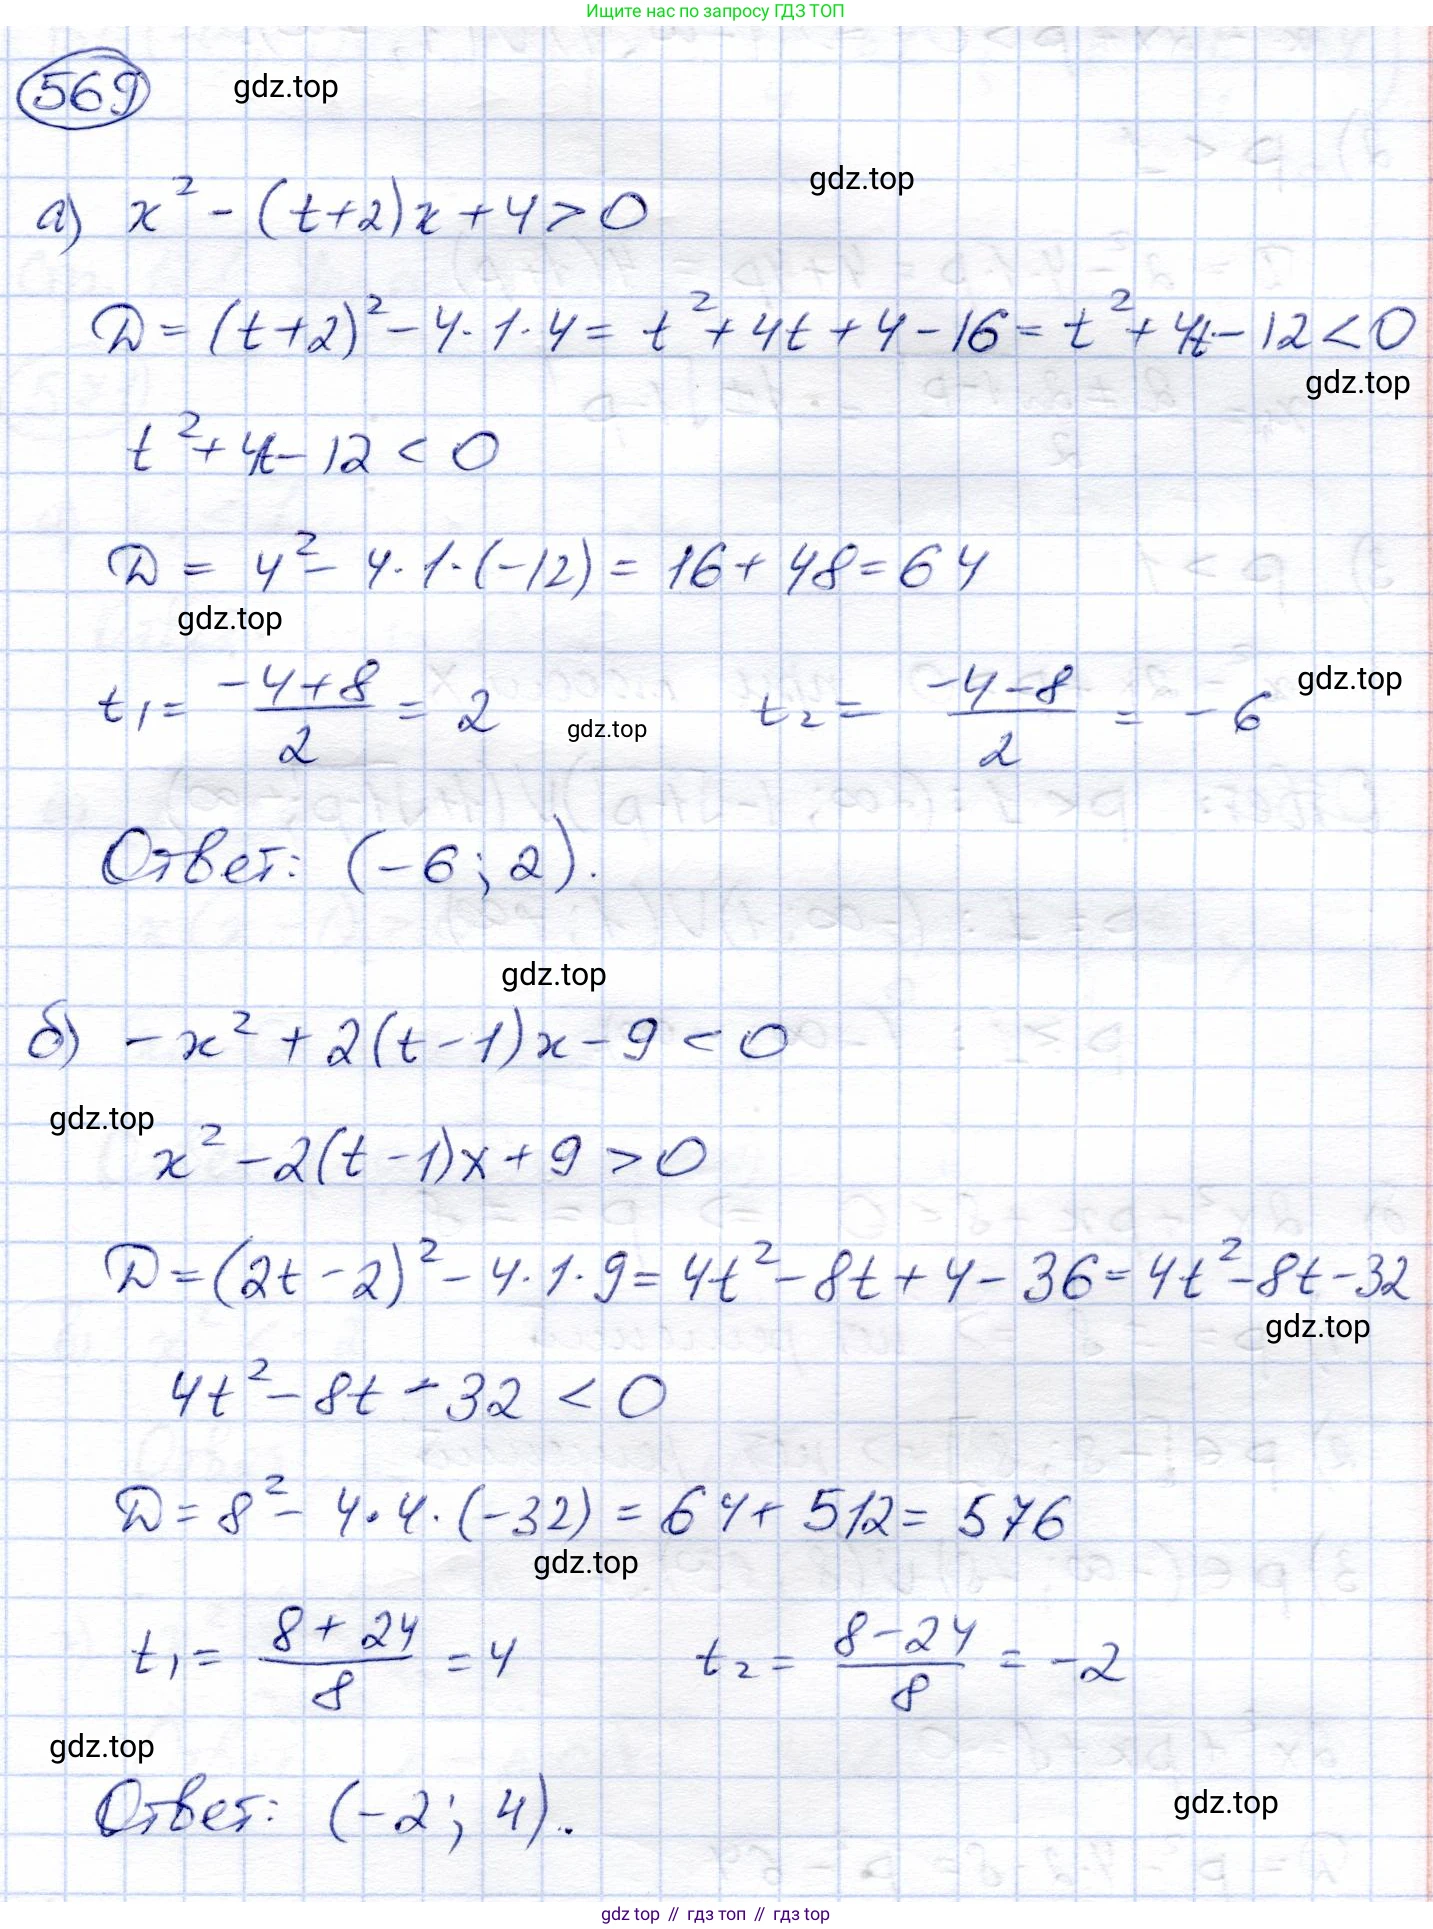 Ищите нас по запросу ГДЗ ТОП
569
gdz.top
gdz.top
а) x² - (t+2)x + 4 > 0
D = (t+2)² - 4·1·4 = t² + 4t + 4 - 16 = t² + 4t - 12 < 0
gdz.top
t² + 4t - 12 < 0
D = 4² - 4·1·(-12) = 16 + 48 = 64
gdz.top
t₁ = (-4+8)/2 = 2 t₂ = (-4-8)/2 = -6
gdz.top
gdz.top
Ответ: (-6; 2).
gdz.top
б) -x² + 2(t-1)x - 9 < 0
gdz.top
x² - 2(t-1)x + 9 > 0
D = (2t-2)² - 4·1·9 = 4t² - 8t + 4 - 36 = 4t² - 8t - 32
gdz.top
4t² - 8t - 32 < 0
D = 8² - 4·4·(-32) = 64 + 512 = 576
gdz.top
t₁ = (8+24)/8 = 4 t₂ = (8-24)/8 = -2
gdz.top
gdz.top
Ответ: (-2; 4).
gdz top // гдз топ // гдз top